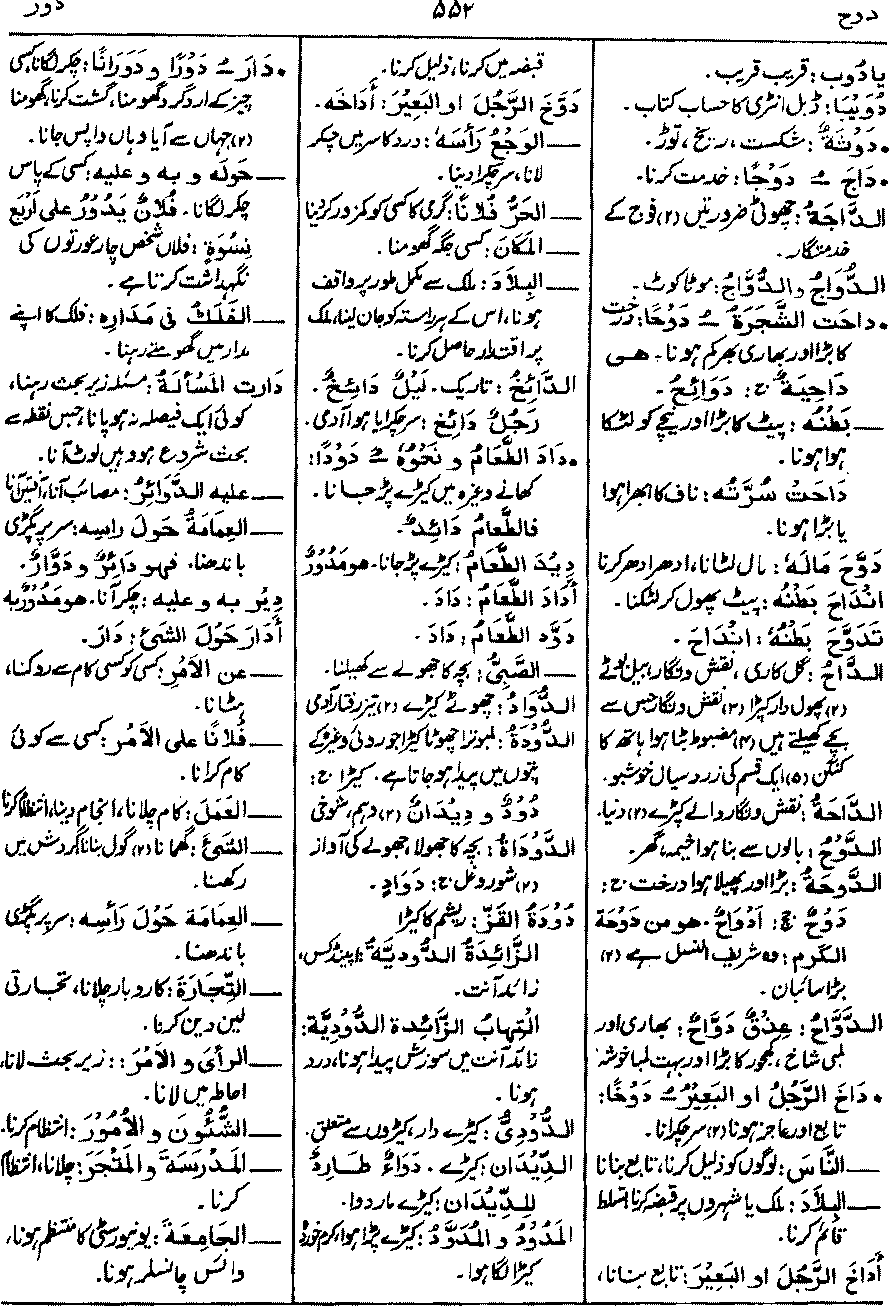 دوح
۵۵۲
دور
یا دُوب: قریب قریب.
دُوْبِیَا: ڈبل انٹری کا حساب کتاب.
•دَوْثَةٌ: شکست، ریخ، توڑ.
•دَاجَ ـُ دَوْجًا: خدمت کرنا.
الدَّاجَةُ: چھوٹی ضرورتیں (۲) فوج کے
خدمتگار.
الدُّوَاجُ والدُّوَّاجُ: موٹا کوٹ.
•دَاحَت الشَّجَرَةُ ـُ دَوْحًا: درخت
کا بڑا اور بھاری بھرکم ہونا. ھی
دَاحِیَةٌ ج: دَوَائِحُ.
ــــ بَطْنُه: پیٹ کا بڑا اور نیچے کو لٹکا
ہوا ہونا.
دَاحَتْ سُرَّتُه: ناف کا ابھرا ہوا
یا بڑا ہونا.
دَوَّحَ مَالَهُ: مال لٹانا، ادھر ادھر کرنا
انْدَاحَ بَطْنُه: پیٹ پھول کر لٹکنا.
تَدَوَّحَ بَطْنُهُ: ابْنَدَاحَ.
الدَّاحُ: گل کاری، نقش و نگار، بیل بوٹے
(۲) پھول دار کپڑا (۳) نقش و نگار جس سے
بچے کھیلتے ہیں (۴) مضبوط بٹا ہوا ہاتھ کا
کنگن (۵) ایک قسم کی زرد سیال خوشبو.
الدَّاحَةُ: نقش و نگار والے کپڑے (۲) دنیا.
الدَّوْحُ: بالوں سے بنا ہوا خیمہ، گھر.
الدَّوحَةُ: بڑا اور پھیلا ہوا درخت ج:
دَوْحٌ جج: اَدْوَاحٌ. هو من دَوْحَة
الکرم: وہ شریف النسل ہے (۲)
بڑا سائبان.
الدَّوَّاحُ: عِذْقٌ دَوَّاحٌ: بھاری اور
لمبی شاخ، کھجور کا بڑا اور بہت لمبا خوشہ
•دَاخَ الرَّجُلُ او البَعِیْرُ ـُ دَوْخًا:
تابع اور عاجز ہونا (۲) سر چکرانا.
ــــ النَّاسَ: لوگوں کو ذلیل کرنا، تابع بنانا
ــــ البِلَادَ: ملک یا شہروں پر قبضہ کرنا، تسلط
قائم کرنا.
أَدَاخَ الرَّجُلَ او البَعِیْرَ: تابع بنانا،
قبضہ میں کرنا، ذلیل کرنا.
دَوَّخَ الرَّجُلَ او البَعِیْرَ: أَدَاخَه.
ــــ الوَجْعُ رَأسَهُ: درد کا سر میں چکر
لانا، سر چکرا دینا.
ــــ الحَرُّ فُلَانًا: گرمی کا کسی کو کمزور کر دینا
ــــ المَکَانَ: کسی جگہ گھومنا.
ــــ البِلَادَ: ملک سے مکمل طور پر واقف
ہونا، اس کے ہر راستہ کو جان لینا، ملک
پر اقتدار حاصل کرنا.
الدَّائِخُ: تاریک. لَیْلٌ دَائِخٌ.
رَجُلٌ دَائِخ: سر چکرایا ہوا آدمی.
•دَادَ الطَّعَامُ و نَحْوُهُ ـُ دَوْدًا:
کھانے وغیرہ میں کیڑے پڑ جانا.
فالطَّعَامُ دَائِدٌ.
دِیْدَ الطَّعَامُ: کیڑے پڑ جانا. هو مَدُوْدٌ
أَدَادَ الطَّعَامُ: دَادَ.
دَوَّدَ الطَّعَامُ: دَادَ.
ــــ الصَّبِیُّ: بچہ کا جھولے سے کھیلنا.
الدُّوَادُ: چھوٹے کیڑے (۲) تیز رفتار آدمی
الدُّوْدَةُ: لمبوترا چھوٹا کیڑا جو روئی وغیرہ کے
پتوں میں پیدا ہو جاتا ہے. کیڑا ج:
دُوْدٌ و دِیْدَانٌ (۲) دہم، شوخی
الدَّوْدَاةُ: بچہ کا جھولا، جھولے کی آواز
(۲) شور و غل ج: دَوَادٍ.
دُوْدَةُ القَزِّ: ریشم کا کیڑا
الزَّائِدَةُ الدُّودِیَّةُ: اپینڈکس،
زائد آنت.
الْتِهابُ الزَّائِدة الدُّوْدِیَّة:
زائد آنت میں سوزش پیدا ہونا، درد
ہونا.
الدُّوْدِیُّ: کیڑے دار، کیڑوں سے متعلق.
الدِّیْدَان: کیڑے. دَوَاءٌ طَارِدٌ
لِلدِّیْدَان: کیڑے مار دوا.
المَدُوْدُ و المُدَوَّدُ: کیڑے پڑا ہوا، کرم خوردہ
کیڑا لگا ہوا.
•دَارَ ـُ دَوْرًا و دَوَرَانًا: چکر لگانا، کسی
چیز کے ارد گرد گھومنا، گشت کرنا، گھومنا
(۲) جہاں سے آیا وہاں واپس جانا.
ــــ حَولَه و به و علیه: کسی کے پاس
چکر لگانا. فُلَانٌ یَدُوْرُ علی أَرْبَعِ
نِسْوَةٍ: فلاں شخص چار عورتوں کی
نگہداشت کرتا ہے.
ــــ الفَلَكُ فی مَدَارِه: فلک کا اپنے
مدار میں گھومتے رہنا.
دَارت المَسْأَلةُ: مسئلہ زیر بحث رہنا،
کوئی ایک فیصلہ نہ ہو پانا، جس نقطہ سے
بحث شروع ہو وہیں لوٹ آنا.
ــــ علیه الدَّوائِرُ: مصائب آنا، آفتیں آنا
ــــ العِمَامَةُ حَولَ راسِه: سر پر پگڑی
باندھنا. فهو دَائِرٌ و دَوَّارٌ.
دِیْرَ به و علیه: چکر آنا. هو مَدُوْرٌ به
أَدَارَ حَوْلَ الشئِ: دَارَ.
ــــ عن الاَمْرِ: کسی کو کسی کام سے روکنا،
ہٹانا.
ــــ فُلَانًا علی الأمْر: کسی سے کوئی
کام کرانا.
ــــ العَمَلَ: کام چلانا، انجام دینا، انتظام کرنا
ــــ الشئَ: گھمانا (۲) گول بنانا گردش میں
رکھنا.
ــــ العِمَامَة حَوْلَ رَأسِه: سر پر پگڑی
باندھنا.
ــــ التِّجَارَةَ: کاروبار چلانا، تجارتی
لین دین کرنا.
ــــ الرأیَ و الأمْرَ: : زیر بحث لانا،
احاطہ میں لانا.
ــــ الشُّئُونَ و الأمُوْرَ: انتظام کرنا.
ــــ المَدْرَسَةَ والمَتْجَرَ: چلانا، انتظام
کرنا.
ــــ الجَامِعَةَ: یونیورسٹی کا منتظم ہونا،
وائس چانسلر ہونا.